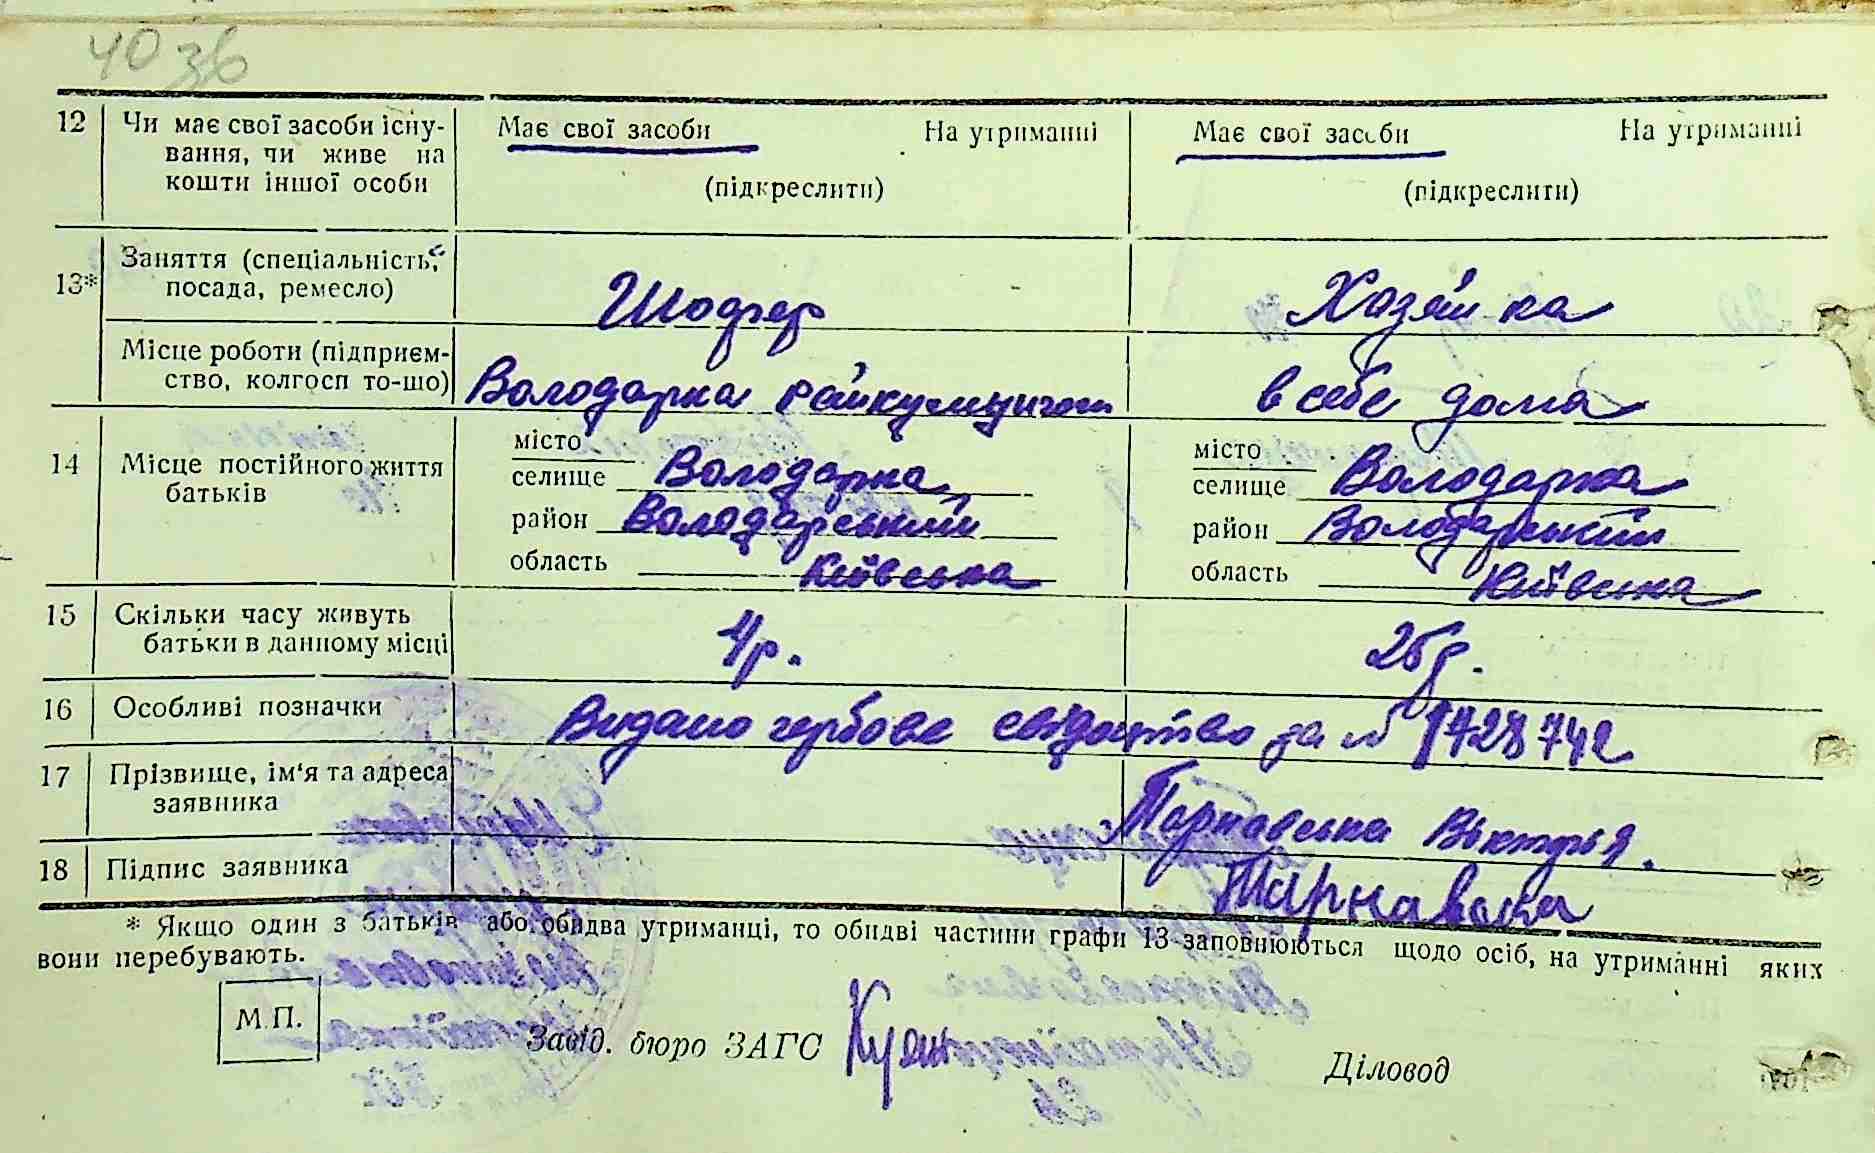 40 зв
12 Чи має свої засоби існу- Має свої засоби На утриманні Має свої засоби На утриманні
вання, чи живе на
кошти іншої особи (підкреслити) (підкреслити)
13* Заняття (спеціальність,
посада, ремесло) Шофер Хазяйка
Місце роботи (підприєм-
ство, колгосп то-шо) Володарка в себе дома
14 Місце постійного життя місто місто
батьків селище Володарка селище Володарка
район Володарський район Володарський
область Київська область Київська
15 Скільки часу живуть
батьки в данному місці 4р. 25р.
16 Особливі позначки Видано гербове свідотство за № 1728742
17 Прізвище, ім'я та адреса
заявника Тарнавська Вікторія.
18 Підпис заявника Тарнавська
* Якщо один з батьків або обидва утриманці, то обидві частини графи 13 заповнюються щодо осіб, на утриманні яких
вони перебувають.
М.П.
Завід. бюро ЗАГС Діловод